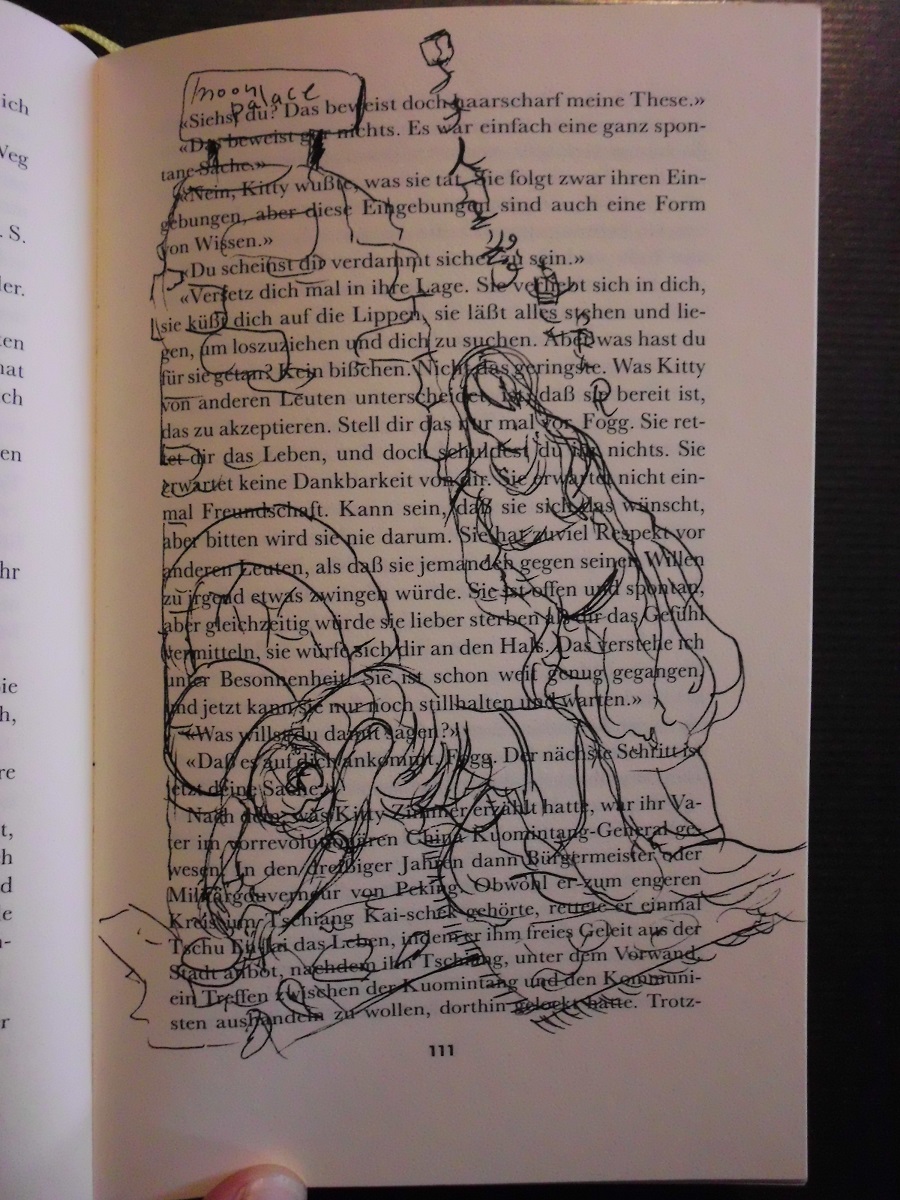 ich
Weg
. S.
ler.
ten
hat
ch
en
hr
ie
h,
re
t,
h
d
e
n-
r
moon
palace
«Siehst du? Das beweist doch haarscharf meine These.»
«Das beweist gar nichts. Es war einfach eine ganz spon-
tane Sache.»
«Nein, Kitty wußte, was sie tat. Sie folgt zwar ihren Ein-
gebungen, aber diese Eingebungen sind auch eine Form
von Wissen.»
«Du scheinst dir verdammt sicher zu sein.»
«Versetz dich mal in ihre Lage. Sie verliebt sich in dich,
sie küßt dich auf die Lippen, sie läßt alles stehen und lie-
gen, um loszuziehen und dich zu suchen. Aber was hast du
für sie getan? Kein bißchen. Nicht das geringste. Was Kitty
von anderen Leuten unterscheidet, ist, daß sie bereit ist,
das zu akzeptieren. Stell dir das nur mal vor, Fogg. Sie ret-
tet dir das Leben, und doch schuldest du ihr nichts. Sie
erwartet keine Dankbarkeit von dir. Sie erwartet nicht ein-
mal Freundschaft. Kann sein, daß sie sich das wünscht,
aber bitten wird sie nie darum. Sie hat zuviel Respekt vor
anderen Leuten, als daß sie jemanden gegen seinen Willen
zu irgend etwas zwingen würde. Sie ist offen und spontan,
aber gleichzeitig würde sie lieber sterben als dir das Gefühl
vermitteln, sie würfe sich dir an den Hals. Das verstehe ich
unter Besonnenheit. Sie ist schon weit genug gegangen,
und jetzt kann sie nur noch stillhalten und warten.»
«Was willst du damit sagen?»
«Daß es auf dich ankommt, Fogg. Der nächste Schritt ist
jetzt deine Sache.»
Nach dem, was Kitty Zimmer erzählt hatte, war ihr Va-
ter im vorrevolutionären China Kuomintang-General ge-
wesen. In den dreißiger Jahren dann Bürgermeister oder
Militärgouverneur von Peking. Obwohl er zum engeren
Kreis um Tschiang Kai-schek gehörte, rettete er einmal
Tschu En-lai das Leben, indem er ihm freies Geleit aus der
Stadt anbot, nachdem ihn Tschiang, unter dem Vorwand,
ein Treffen zwischen der Kuomintang und den Kommuni-
sten aushandeln zu wollen, dorthin gelockt hatte. Trotz-
111